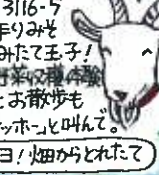 3116-5
作りみそ
みたて玉子!
野菜収穫体験
とお散歩も
ッホー」と叫んで。
日!畑からとれたて